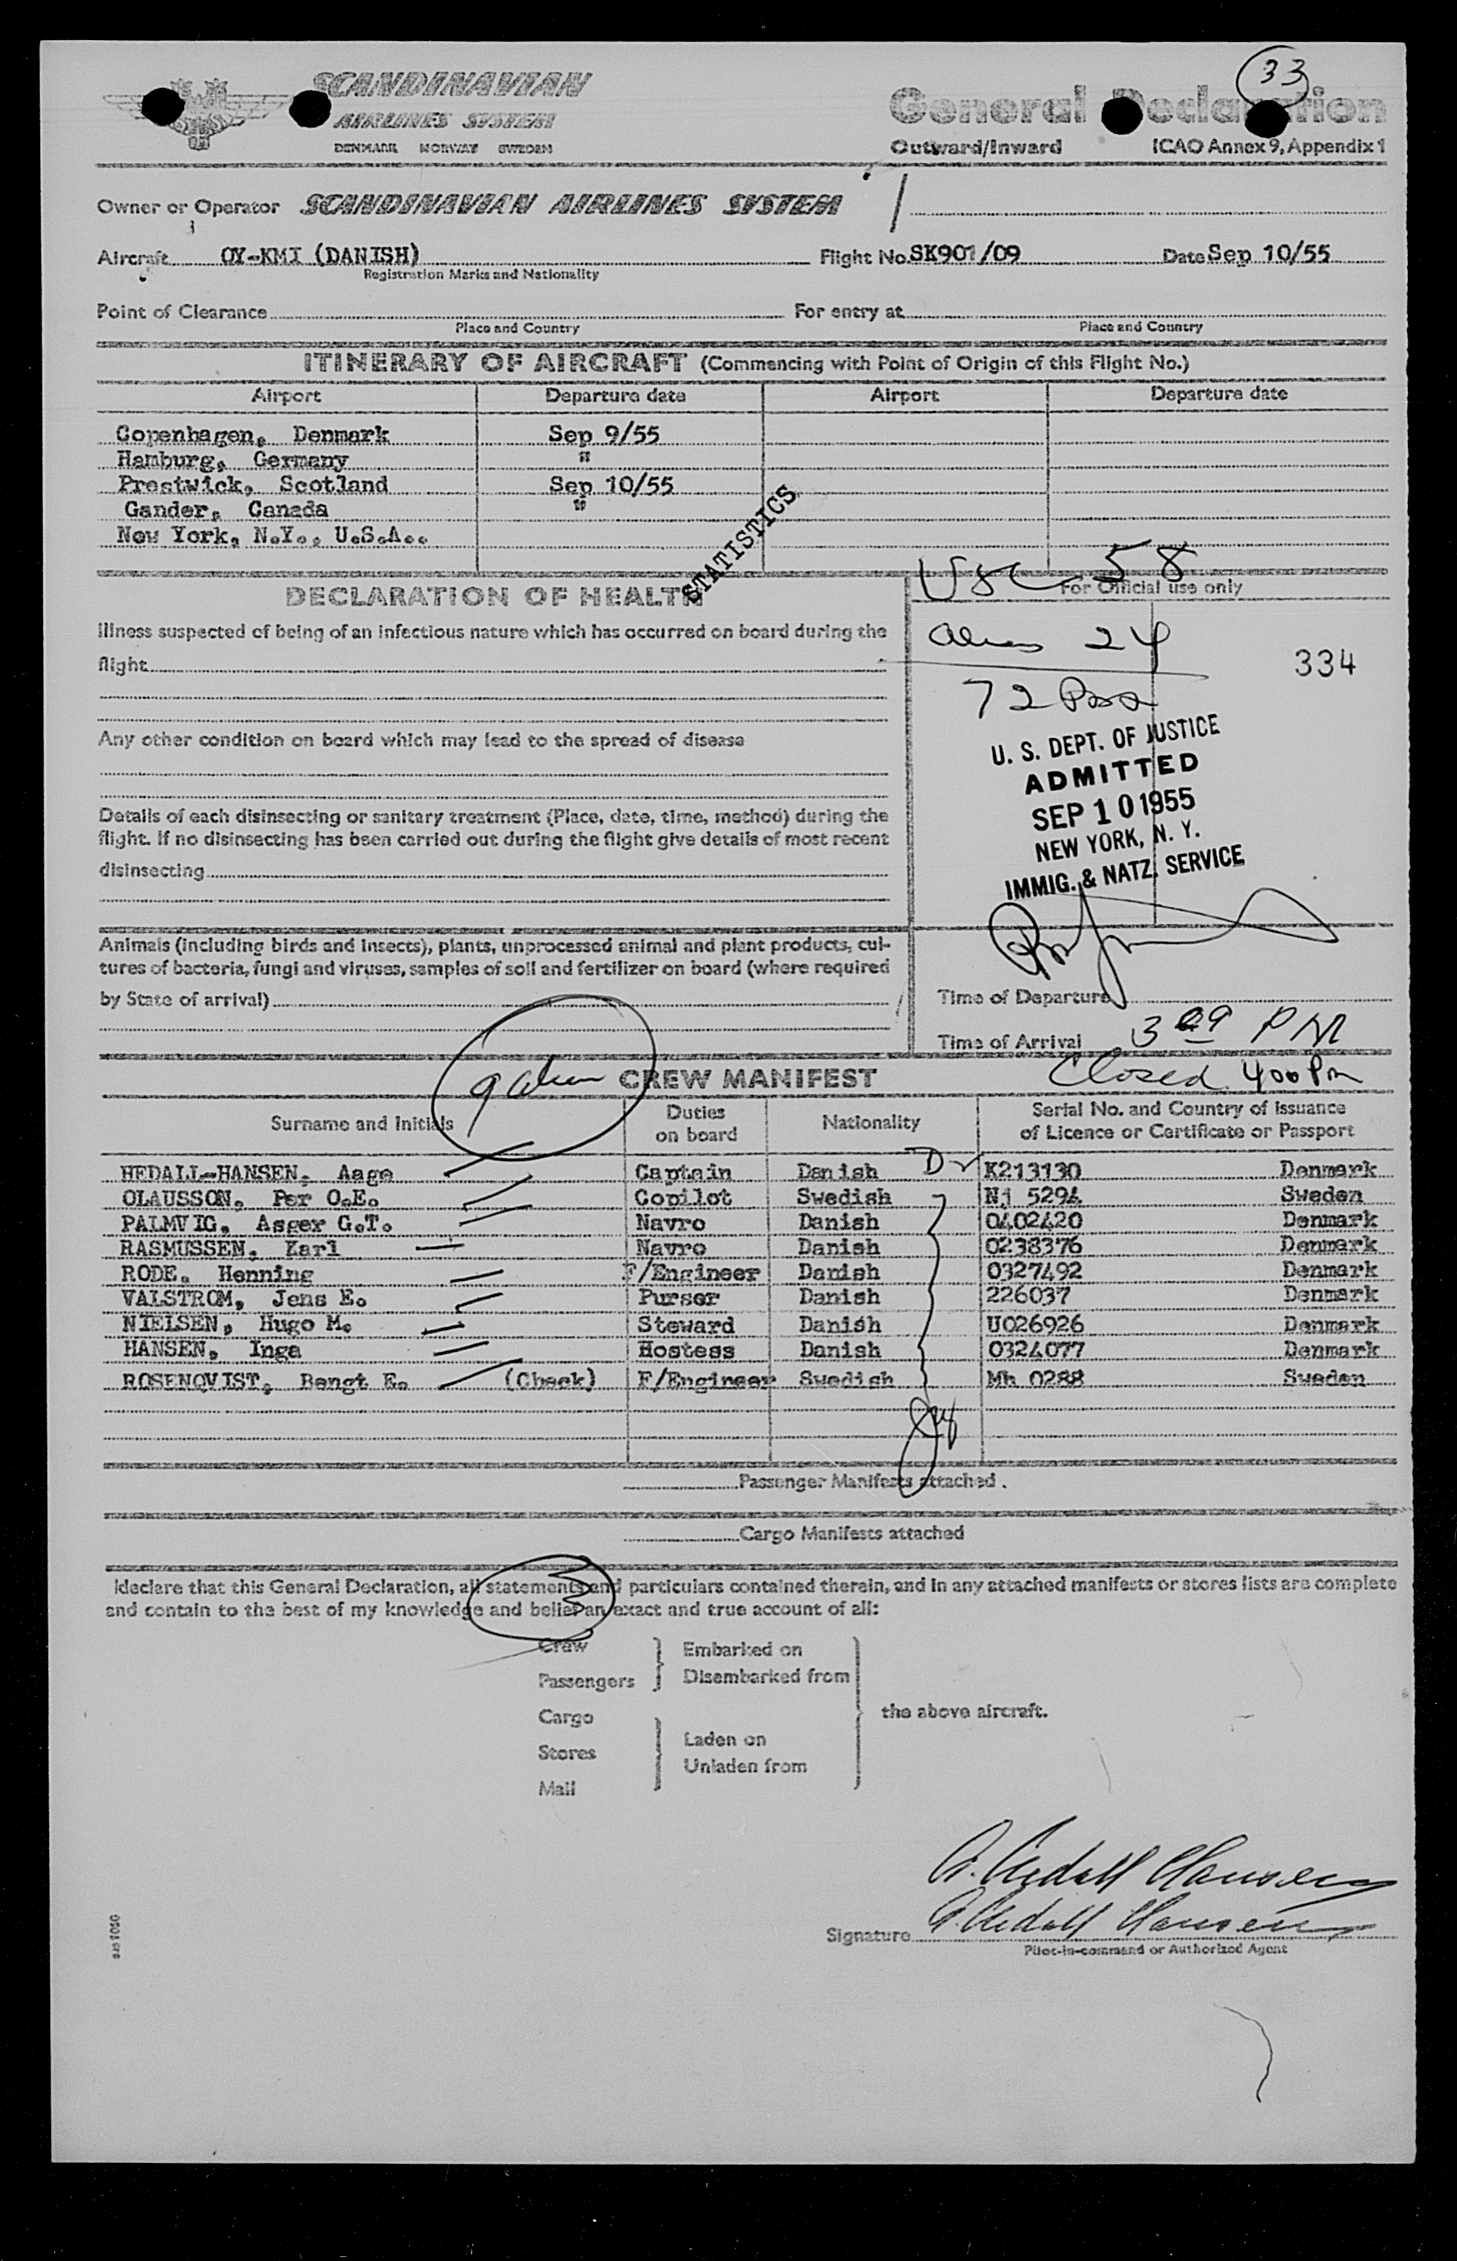 33
SCANDINAVIAN
AIRLINES SYSTEM
DENMARK NORWAY SWEDEN
General Declaration
Outward/Inward ICAO Annex 9, Appendix 1
Owner or Operator SCANDINAVIAN AIRLINES SYSTEM
Aircraft OY-KMI (DANISH) Flight No. SK901/09 Date Sep 10/55
Registration Marks and Nationality
Point of Clearance For entry at
Place and Country Place and Country
ITINERARY OF AIRCRAFT (Commencing with Point of Origin of this Flight No.)
Airport Departure date Airport Departure date
Copenhagen, Denmark Sep 9/55
Hamburg, Germany "
Prestwick, Scotland Sep 10/55
Gander, Canada "
New York, N.Y., U.S.A..
STATISTICS
USC 58
DECLARATION OF HEALTH
For Official use only
Illness suspected of being of an infectious nature which has occurred on board during the
flight
Aliens 24
334
72 Pass
Any other condition on board which may lead to the spread of disease
U. S. DEPT. OF JUSTICE
ADMITTED
SEP 10 1955
NEW YORK, N. Y.
IMMIG. & NATZ. SERVICE
Details of each disinsecting or sanitary treatment (Place, date, time, method) during the
flight. If no disinsecting has been carried out during the flight give details of most recent
disinsecting
Animals (including birds and insects), plants, unprocessed animal and plant products, cul-
tures of bacteria, fungi and viruses, samples of soil and fertilizer on board (where required
by State of arrival)
Time of Departure
Time of Arrival 3 09 PM
Closed 400 Pm
9 alien
CREW MANIFEST
Surname and Initials Duties on board Nationality Serial No. and Country of Issuance of Licence or Certificate or Passport
HEDALL-HANSEN, Aage Captain Danish K213130 Denmark
OLAUSSON, Per O.E. Copilot Swedish Nj 5294 Sweden
PALMVIG, Asger G.T. Navro Danish 0402420 Denmark
RASMUSSEN, Karl Navro Danish 0238376 Denmark
RODE, Henning F/Engineer Danish 0327492 Denmark
VALSTROM, Jens E. Purser Danish 226037 Denmark
NIELSEN, Hugo M. Steward Danish U026926 Denmark
HANSEN, Inga Hostess Danish 0324077 Denmark
ROSENQVIST, Bengt E. (Check) F/Engineer Swedish Mh 0288 Sweden
Passenger Manifests attached.
Cargo Manifests attached
I declare that this General Declaration, all statements and particulars contained therein, and in any attached manifests or stores lists are complete
and contain to the best of my knowledge and belief an exact and true account of all:
Crew
Passengers
Embarked on
Disembarked from
Cargo
Stores
Mail
Laden on
Unladen from
the above aircraft.
A. Hedall Hansen
A. Hedall Hansen
Signature
Pilot-in-command or Authorized Agent